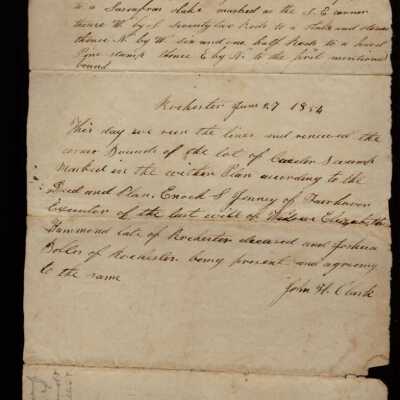 to a Sassafras stake marked as the S. E corner
thence W by S Seventy two Rods to a Stake and stones
thence N by W Six and one half Rods to a
Pine stump thence E by N to the first mentioned
bound
Rochester June 27 1854
This day we run the lines and renewed the
corner Bounds of the lot of Ceader Swamp
Marked in the within Plan according to the
Deed and Plan, Enoch S Jenney of Fairhaven
Executor of the last will of Widow Elizabeth
Hammond late of Rochester deceased and Joshua
of Rochester being present and agreeing
to the same
John H. Clark